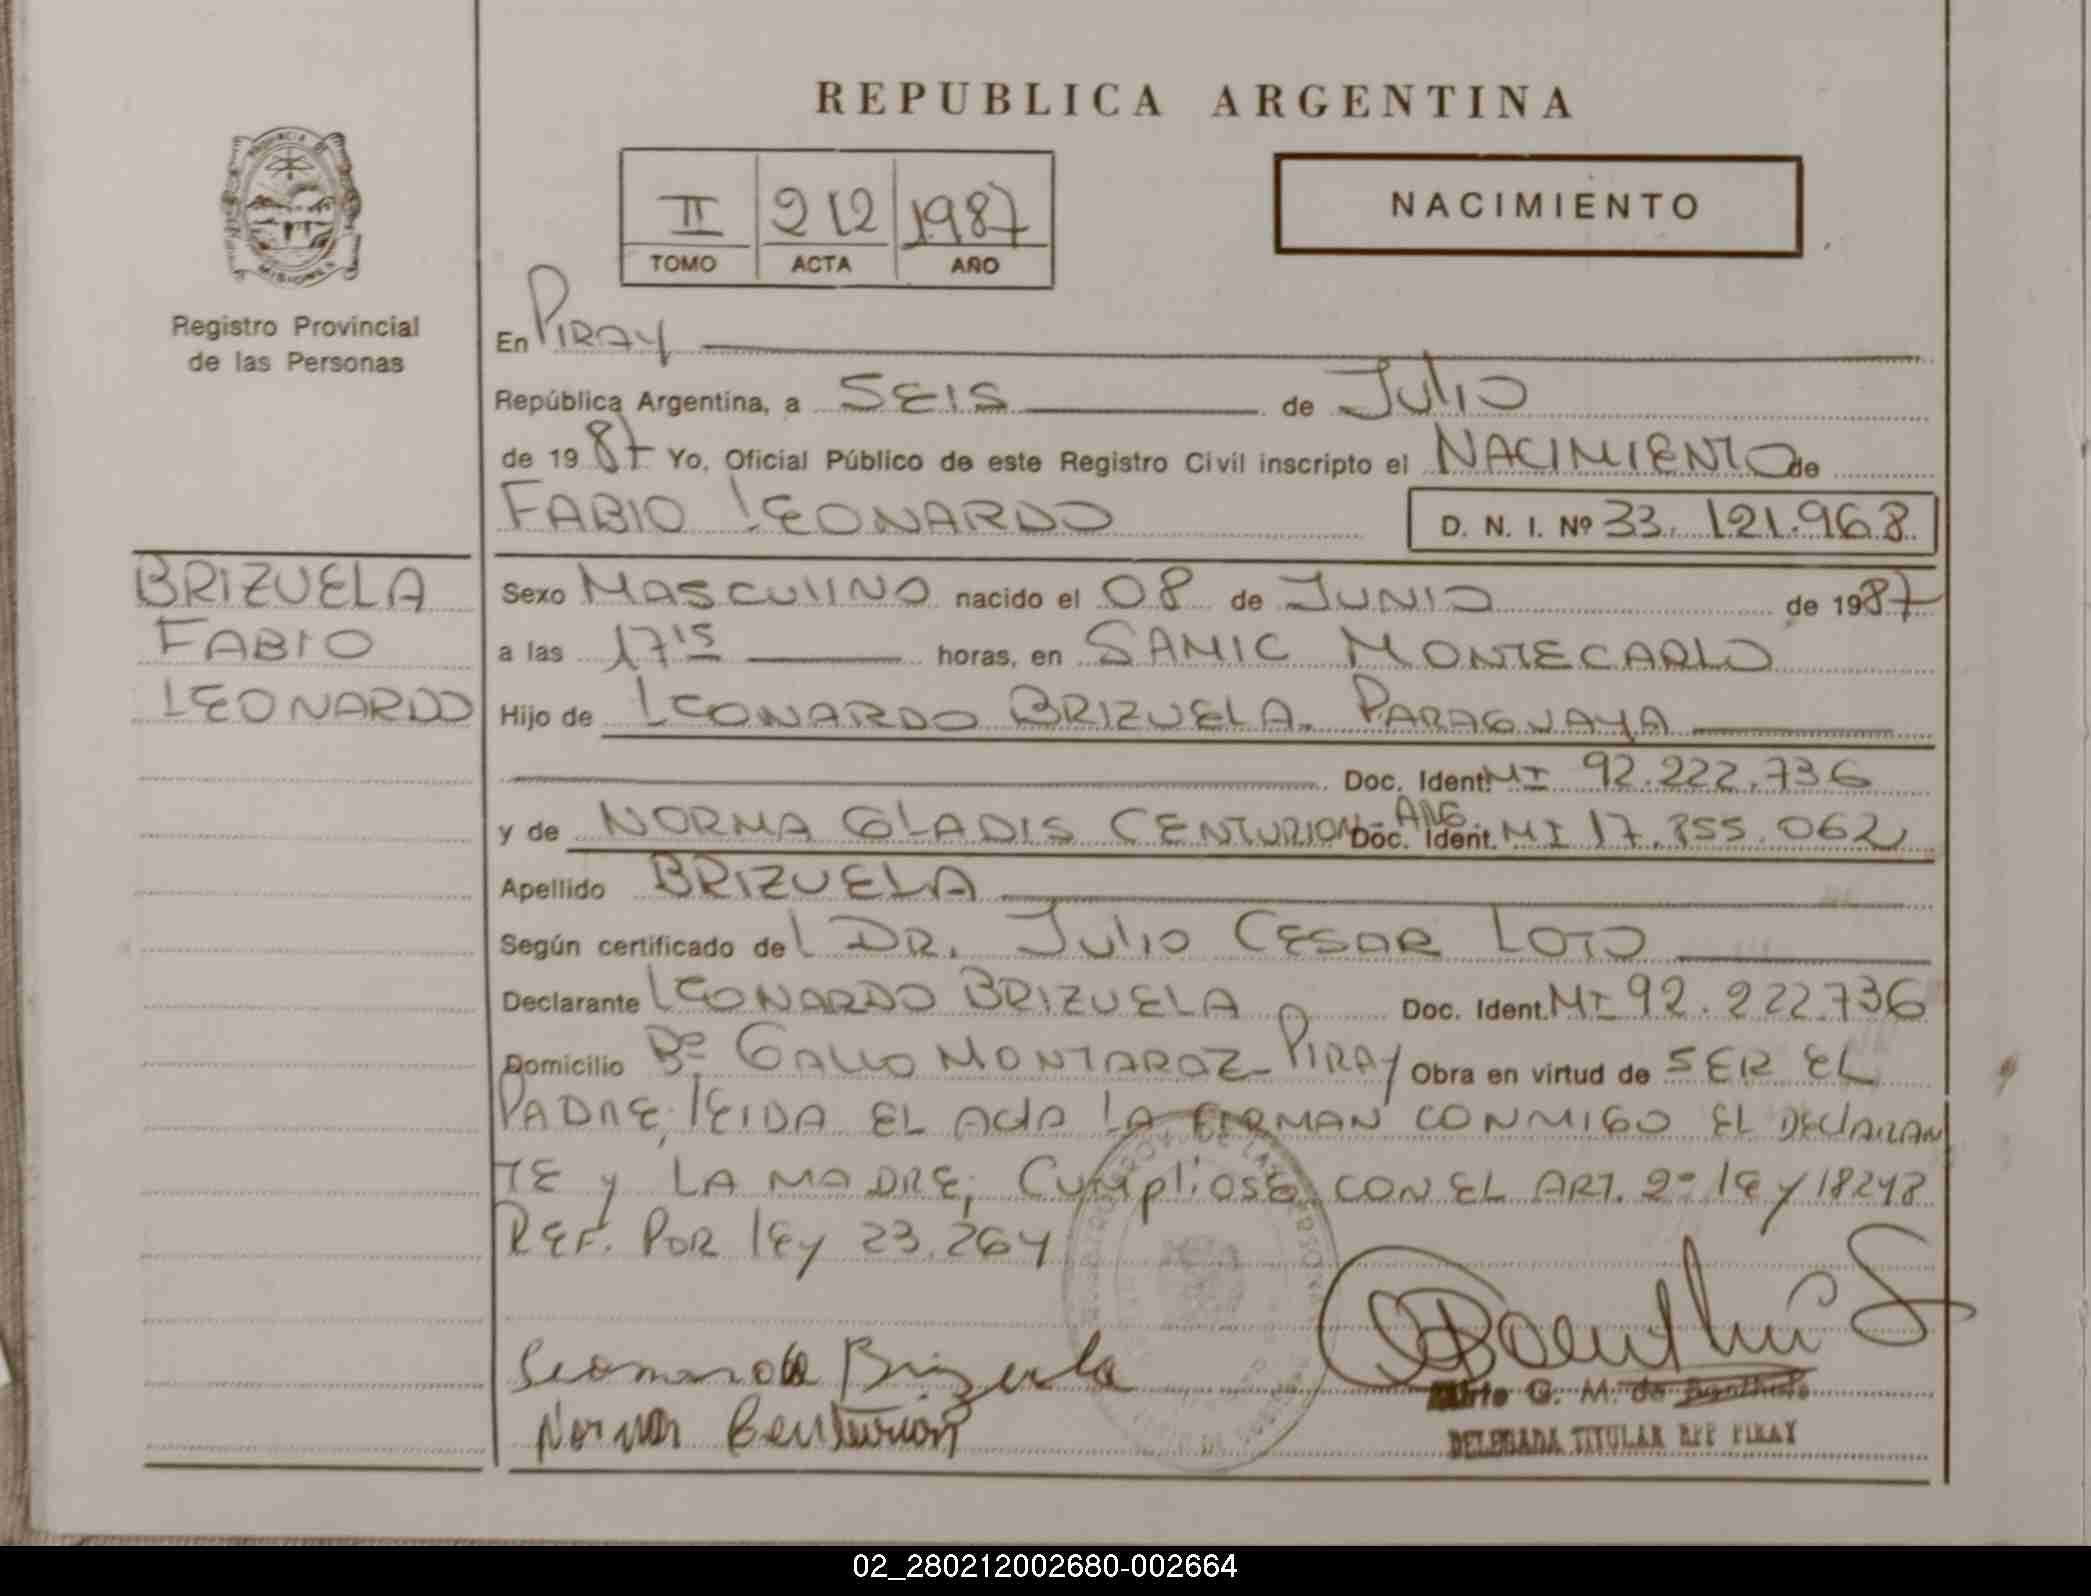 REPUBLICA ARGENTINA
PROVINCIA DE MISIONES
Registro Provincial
de las Personas
II 212 1987
TOMO ACTA AÑO
NACIMIENTO
En PIRAY
República Argentina, a SEIS de JULIO
de 1987 Yo, Oficial Público de este Registro Civil inscripto el NACIMIENTO de
FABIO LEONARDO D. N. I. Nº 33.121.968
BRIZUELA
FABIO
LEONARDO
Sexo MASCULINO nacido el 08 de JUNIO de 1987
a las 17 15 horas, en SAMIC MONTECARLO
Hijo de LEONARDO BRIZUELA. PARAGUAYA
Doc. Ident. MI 92.222.736
y de NORMA GLADIS CENTURION - ARG. Doc. Ident. MI 17.355.062
Apellido BRIZUELA
Según certificado de L DR. JULIO CESAR LOTO
Declarante LEONARDO BRIZUELA Doc. Ident. MI 92.222.736
Domicilio Bº GALLO MONTARAZ - PIRAY Obra en virtud de SER EL
PADRE; LEIDA EL ACTA LA FIRMAN CONMIGO EL DECLARAN
TE y LA MADRE; CUMPLIOSE CON EL ART. 2º LEY 18248
REF. POR LEY 23.264
Leonardo Brizuela
Norma Centurion
G. M. de
DELEGADA TITULAR RPP PIRAY
02_280212002680-002664